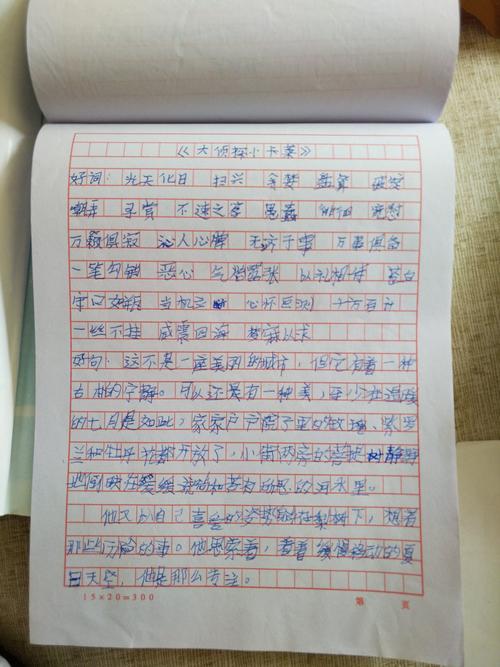 《大侦探小卡莱》
好词：光天化日 扫兴 盘算
嘲弄 寻赏 不速之客 愚蠢 宽慰
万籁俱寂 沁人心脾 无济于事 万事俱备
一笔勾销 恶心 气焰嚣张 以礼相待 苍白
守口如瓶 当机立断 心怀叵测 千方百计
一丝不挂 威震四海 梦寐以求
好句：这不是一座美丽的城市，但它有着一种
古雅的宁静。可以还是有一种美，至少在温暖
的七月是如此，家家户户开了里的玫瑰、紫罗
兰和牡丹花都开放了，小街两旁的菩提树静静
地倒映在缓缓流动和若有所思的河水里。
他又以自己喜爱的姿势躺在梨树下，想着
那些冒险的事。他思索着，看着缓慢移动的夏
日天空，他是那么专注。
15×20=300
第 页